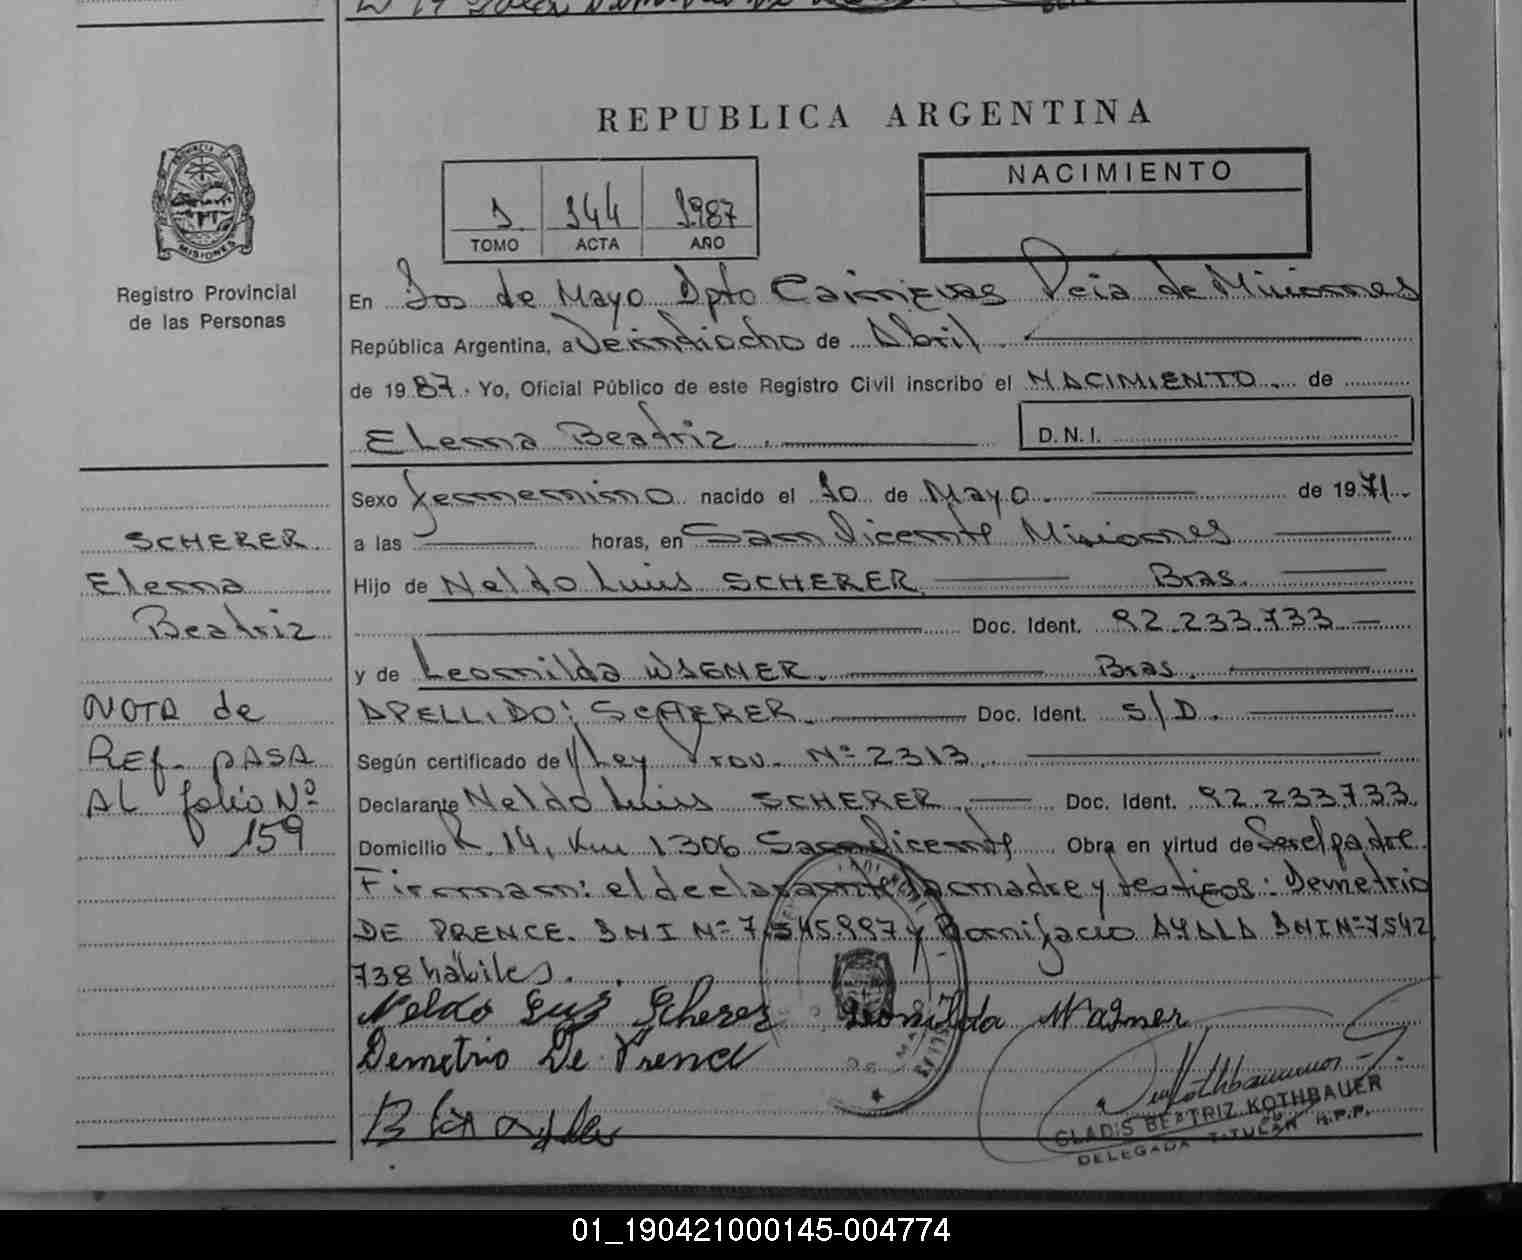 REPUBLICA ARGENTINA
PROVINCIA DE
MISIONES
Registro Provincial
de las Personas
1 144 1987
TOMO ACTA AÑO
NACIMIENTO
En Dos de Mayo Dpto Cainguas Pcia de Misiones
República Argentina, a Veintiocho de Abril
de 1987. Yo, Oficial Público de este Registro Civil inscribo el NACIMIENTO. de
Elena Beatriz D.N.I.
Sexo femenino nacido el 10 de Mayo de 1971.
a las horas, en San Vicente Misiones
Hijo de Neldo Luis SCHERER Bras.
Doc. Ident. 92.233.733
y de Leonilda WAGNER. Bras.
APELLIDO: SCHERER. Doc. Ident. S/D.
Según certificado de Ley Prov. Nº 2313.
Declarante Neldo Luis SCHERER Doc. Ident. 92.233.733.
Domicilio R. 14, Km 1306 San Vicente Obra en virtud de Ser el padre.
Firman: el declarante, la madre y testigos: Demetrio
DE PRENCE. DNI Nº 7.545.997 y Bonifacio AYALA DNI Nº 7542
738 hábiles.
Neldo Luis Scherer Leonilda Wagner
Demetrio De Prence
GLADIS BEATRIZ KOTHBAUER
DELEGADA TITULAR R.P.P.
SCHERER
Elena
Beatriz
NOTA de
Ref. pASA
AL folio Nº
159
01_190421000145-004774